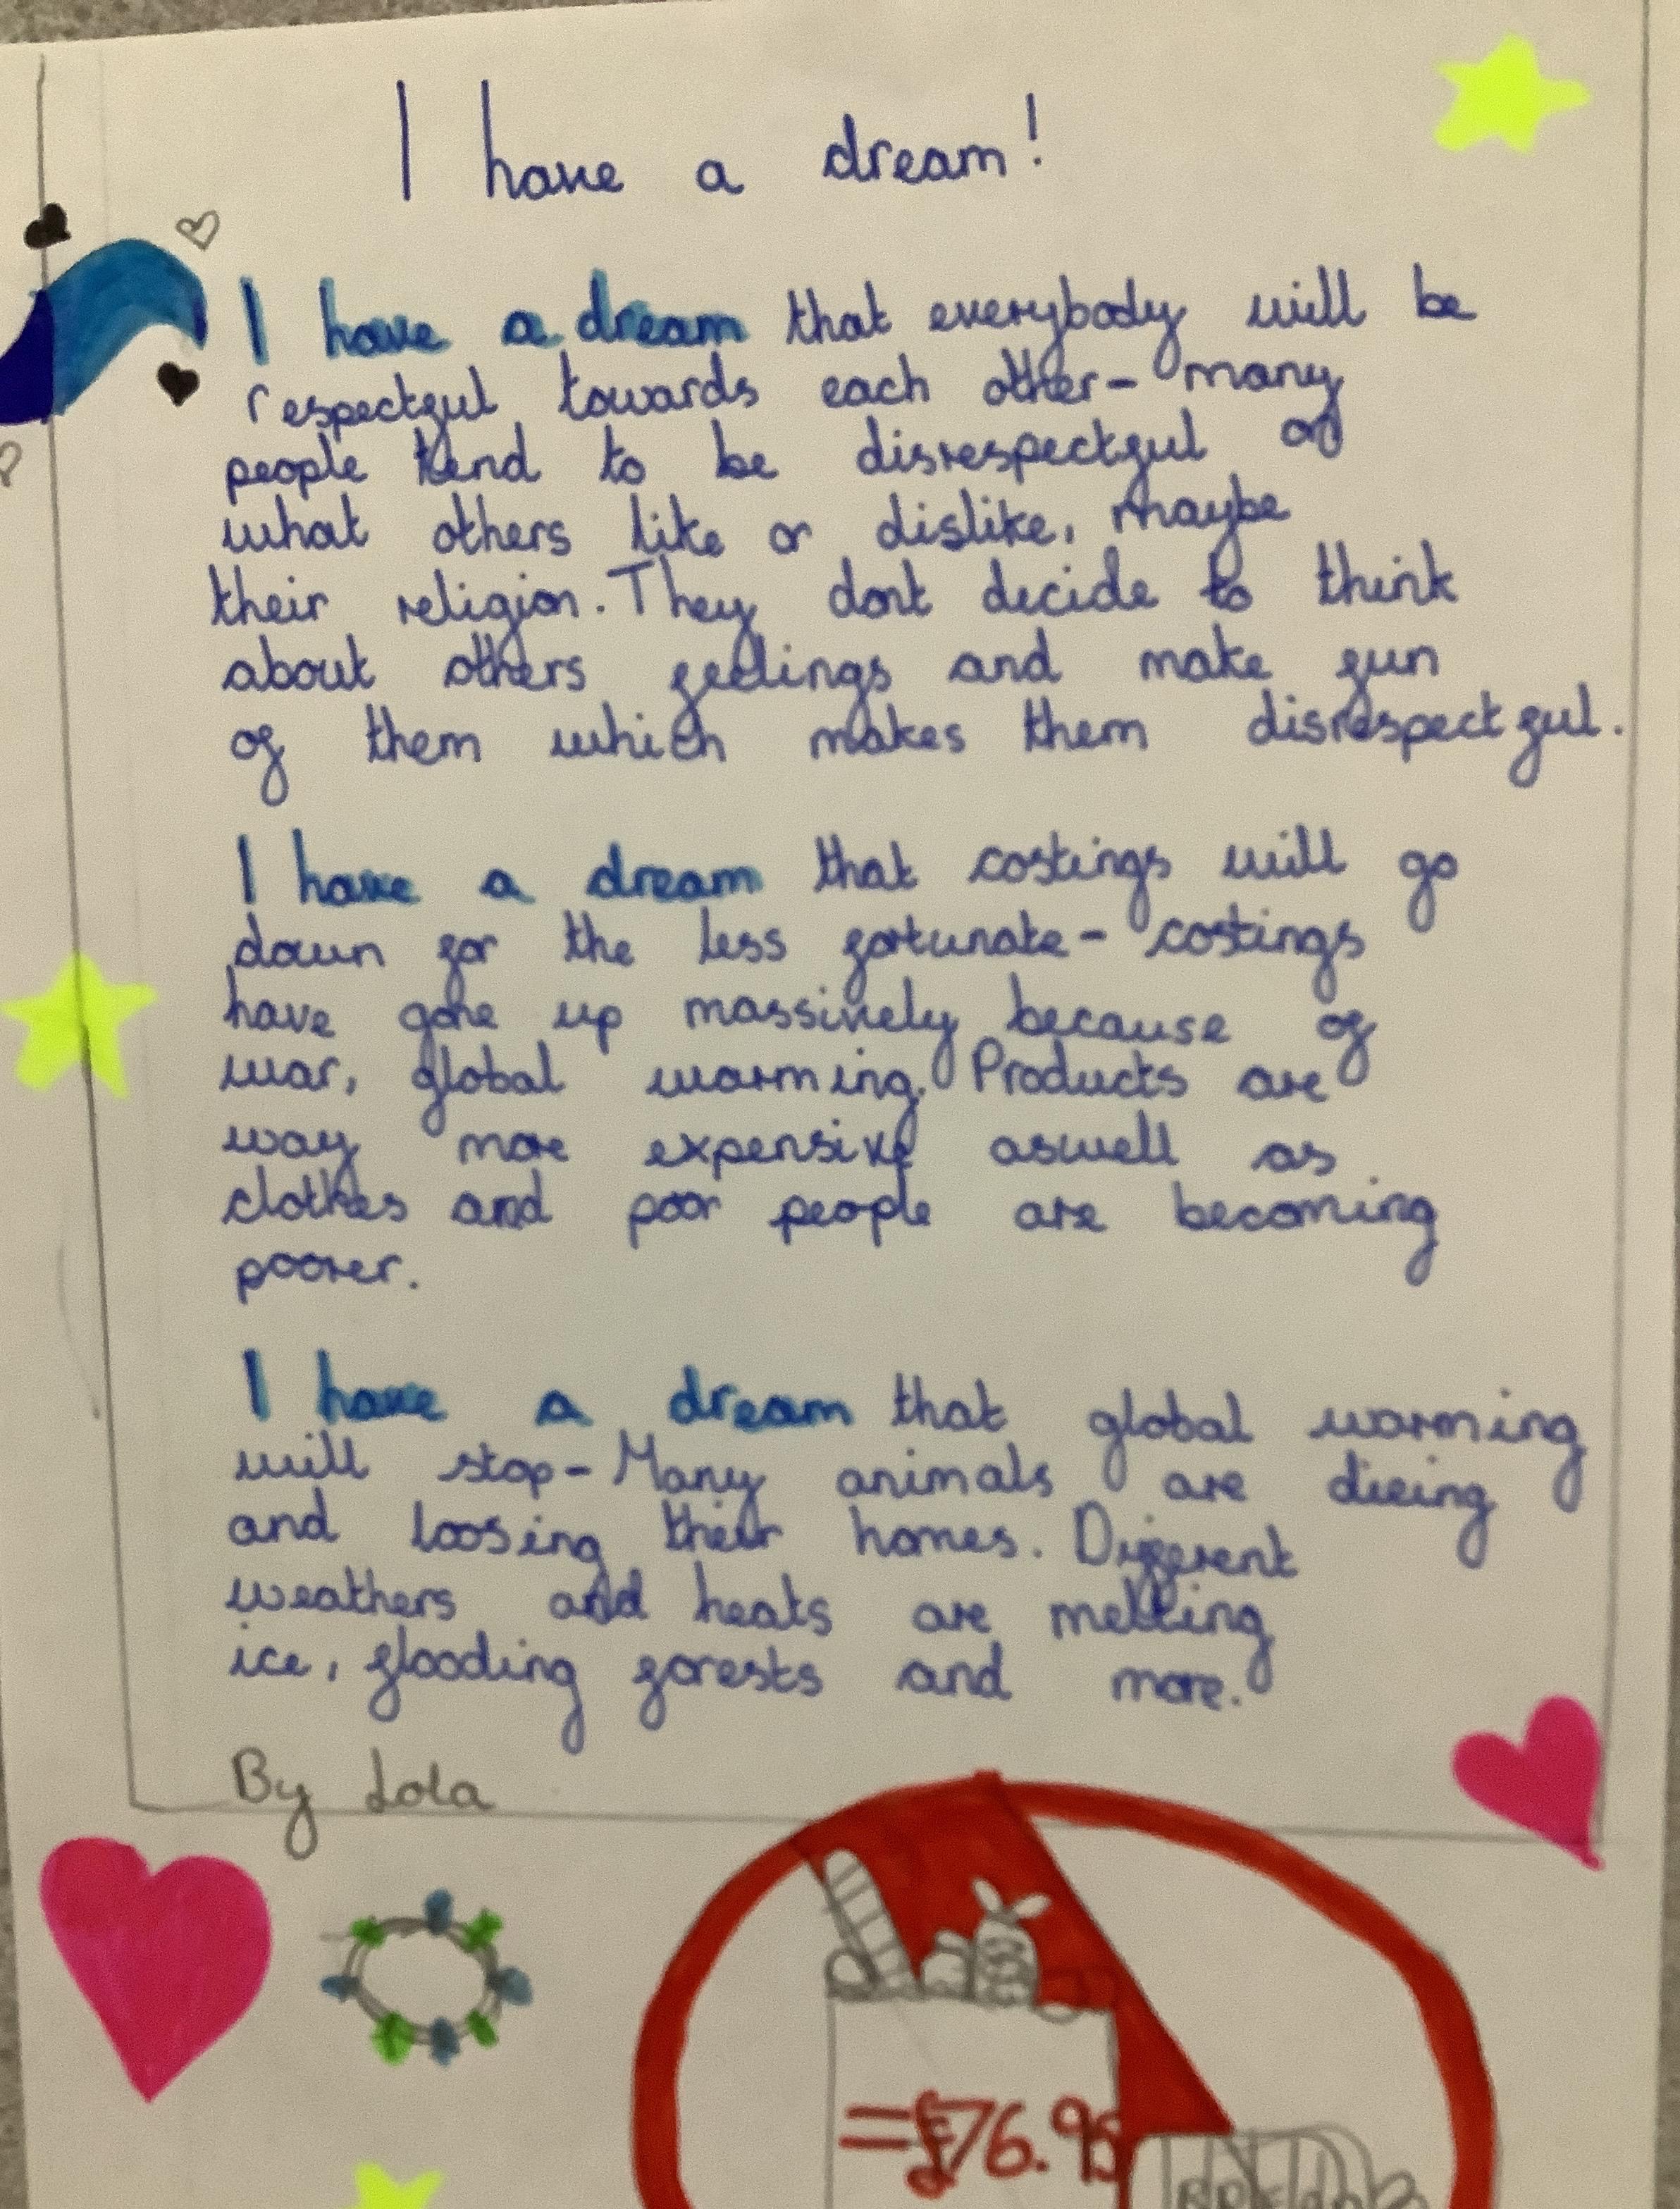 I have a dream!
I have a dream that everybody will be
respectful towards each other- many
people tend to be disrespectful of
what others like or dislike, maybe
their religion. They dont decide to think
about others feelings and make fun
of them which makes them disrespectful.
I have a dream that costings will go
down for the less fortunate- costings
have gone up massively because of
war, global warming. Products are
way more expensive aswell as
clothes and poor people are becoming
poorer.
I have a dream that global warming
will stop- Many animals are dieing
and loosing their homes. Different
weathers and heats are melting
ice, flooding forests and more.
By Lola
=£76.95
BREAD